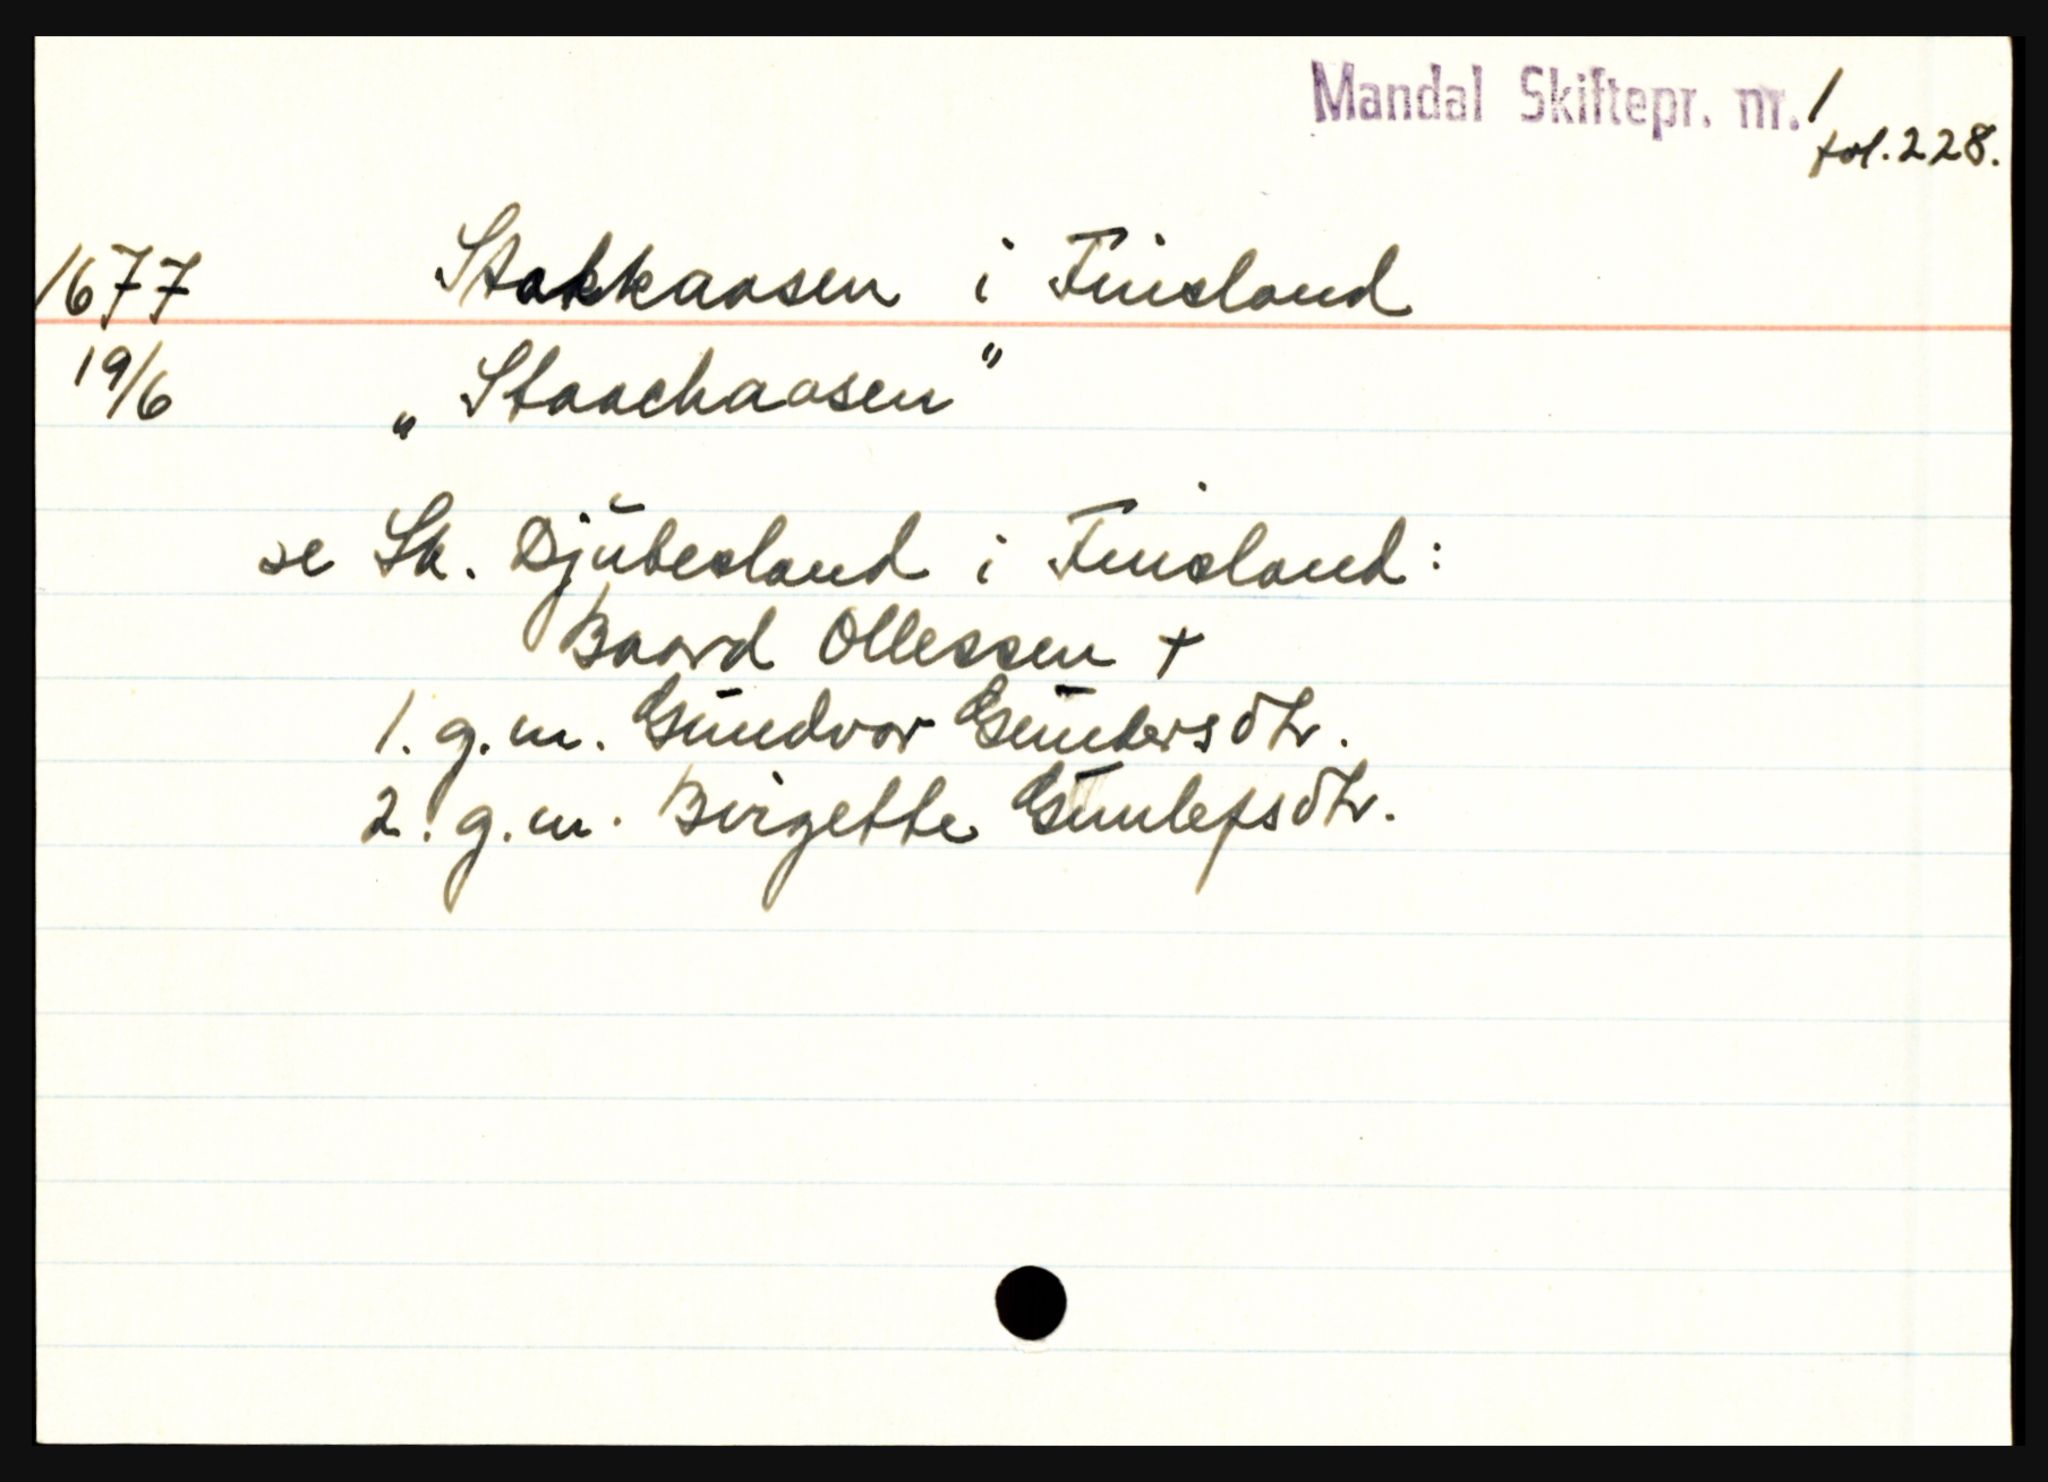 Mandal Skiftepr. nr. 1
fol. 228.
1677 Stokkaasen i Finsland
19/6 „Staachaasen"
se Sk. Djubesland i Finsland:
Baard Ollessen +
1. g.m. Gundvor Guntersdtr.
2. g.m. Birgette Gunlefsdtr.